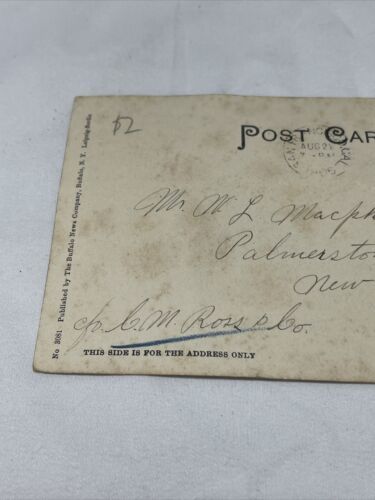 $2
POST CAR
AUG 21
CAL
Mr. W L Macph
Palmerston
New
c/o. C. M. Ross & Co.
THIS SIDE IS FOR THE ADDRESS ONLY
No 3081 Published by The Buffalo News Company, Buffalo, N. Y. Leipzig-Berlin